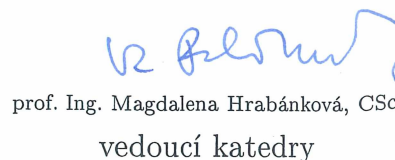 prof. Ing. Magdalena Hrabánková, CSc
vedoucí katedry